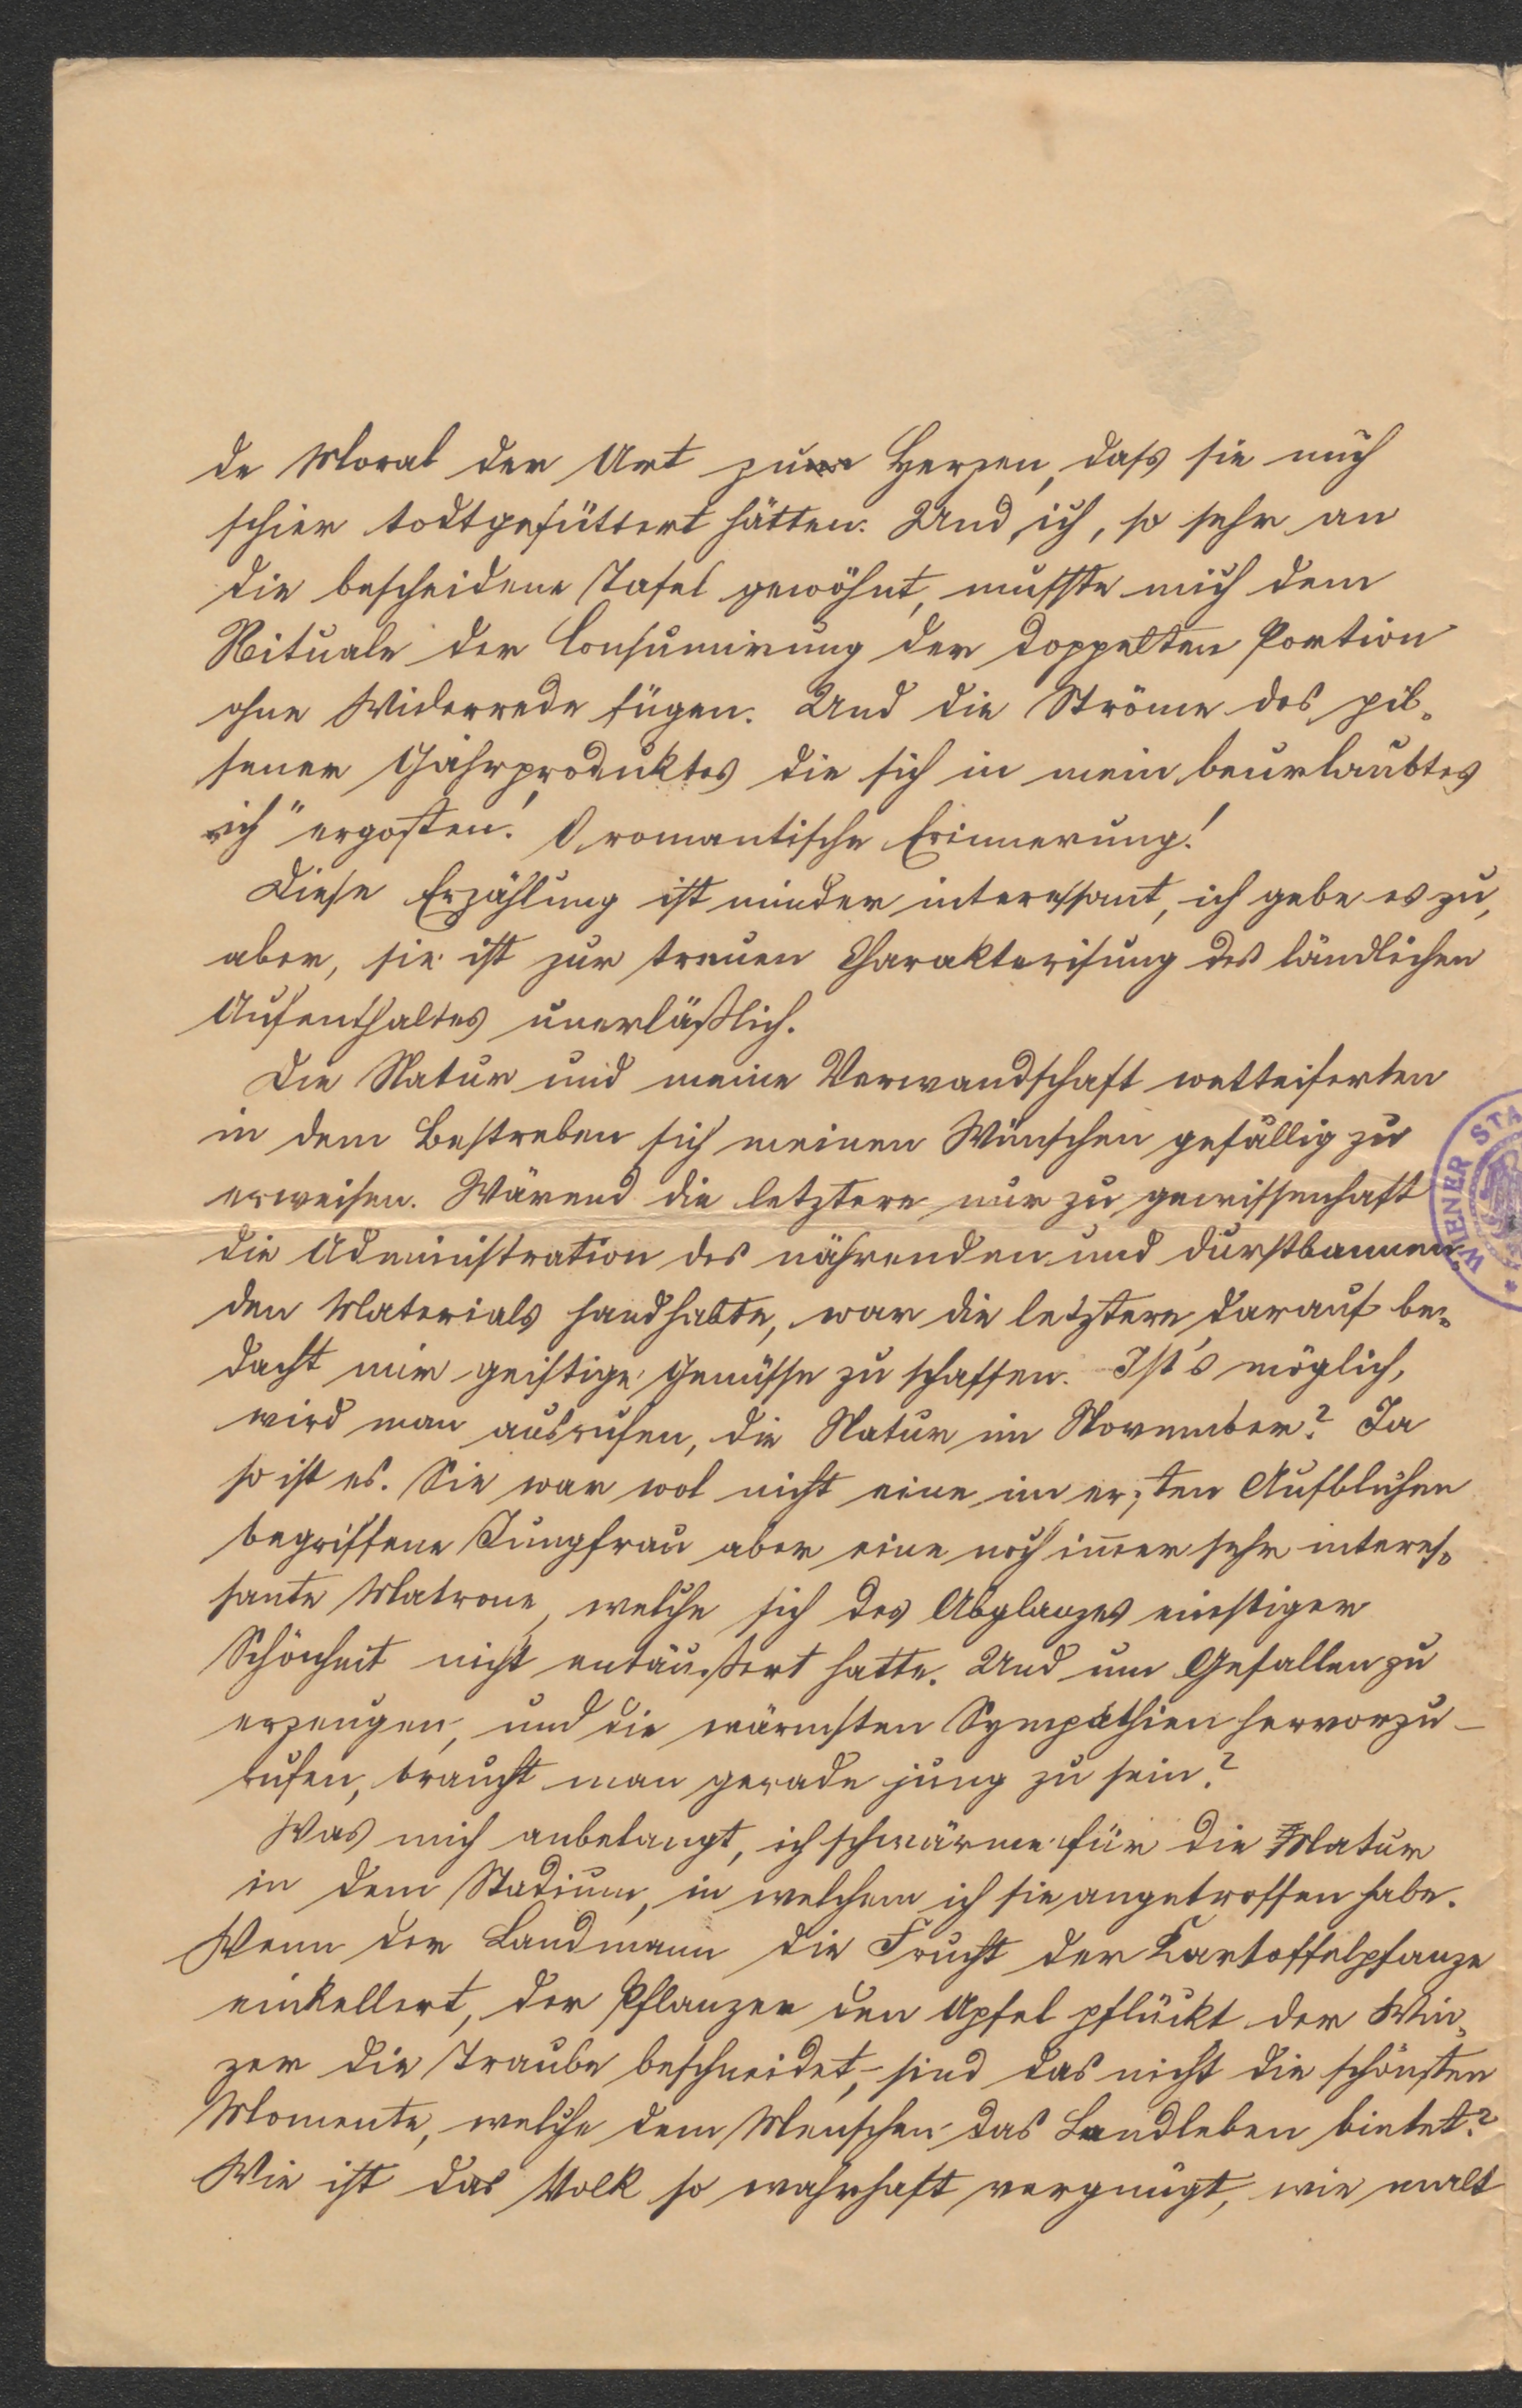 de Moral der Art zu Herzen, dass sie mich
schier todtgefüttert hätten. Und ich, so sehr an
die bescheidene Tafel gewöhnt, musste mich dem
Rituale der Consumirung der doppelten Portion
ohne Widerrede fügen. Und die Ströme des pil-
sener Gährproduktes die sich in mein beurlaubtes
„ich" ergossen! O, romantische Erinnerung!
Diese Erzählung ist minder interessant, ich gebe es zu,
aber, sie ist zur treuen Charakterisung des ländlichen
Aufenthaltes unerläßlich.
Die Natur und meine Verwandschaft wetteiferten
in dem Bestreben sich meinen Wünschen gefällig zu
erweisen. Wärend die letztere nur zu gewissenhaft
die Administration des nährenden und durstbannen-
den Materials handhabte, war die letztere darauf be-
dacht mir geistige Genüsse zu schaffen. Ist's möglich,
wird man ausrufen, die Natur im November? Ja
so ist es. Sie war wol nicht eine im ersten Aufblühen
begriffene Jungfrau aber eine noch im̅er sehr interes-
sante Matrone, welche sich des Abglanzes einstiger
Schönheit nicht entäußert hatte. Und um Gefallen zu
erzeugen, und die wärmsten Sympathien hervorzu-
rufen, braucht man gerade jung zu sein?
Was mich anbelangt, ich schwärme für die Natur
in dem Stadium, in welchem ich sie angetroffen habe.
Wenn der Landmann die Frucht der Kartoffelpfanze
einkellert, der Pflanzer den Apfel pflückt der Win-
zer die Traube beschneidet, – sind das nicht die schönsten
Momente, welche dem Menschen das Landleben bietet?
Wie ist das Volk so wahrhaft vergnügt, wie malt
WIENER STA